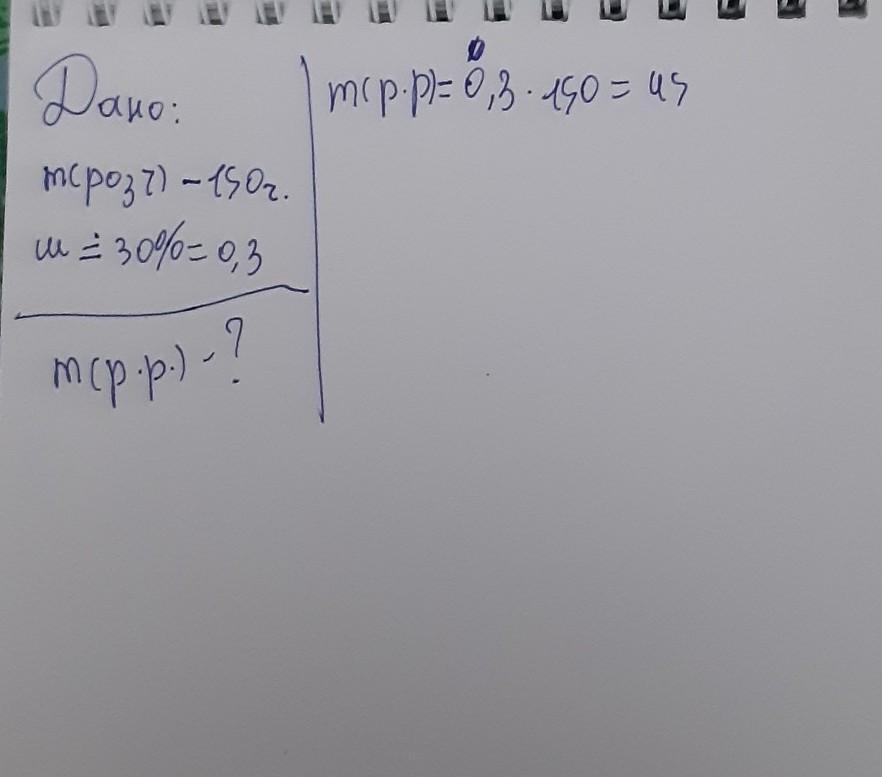 Дано:
m(розч) - 150г.
ω = 30% = 0,3
m(р.р.) - ?
m(р.р) = 0,3 · 150 = 45